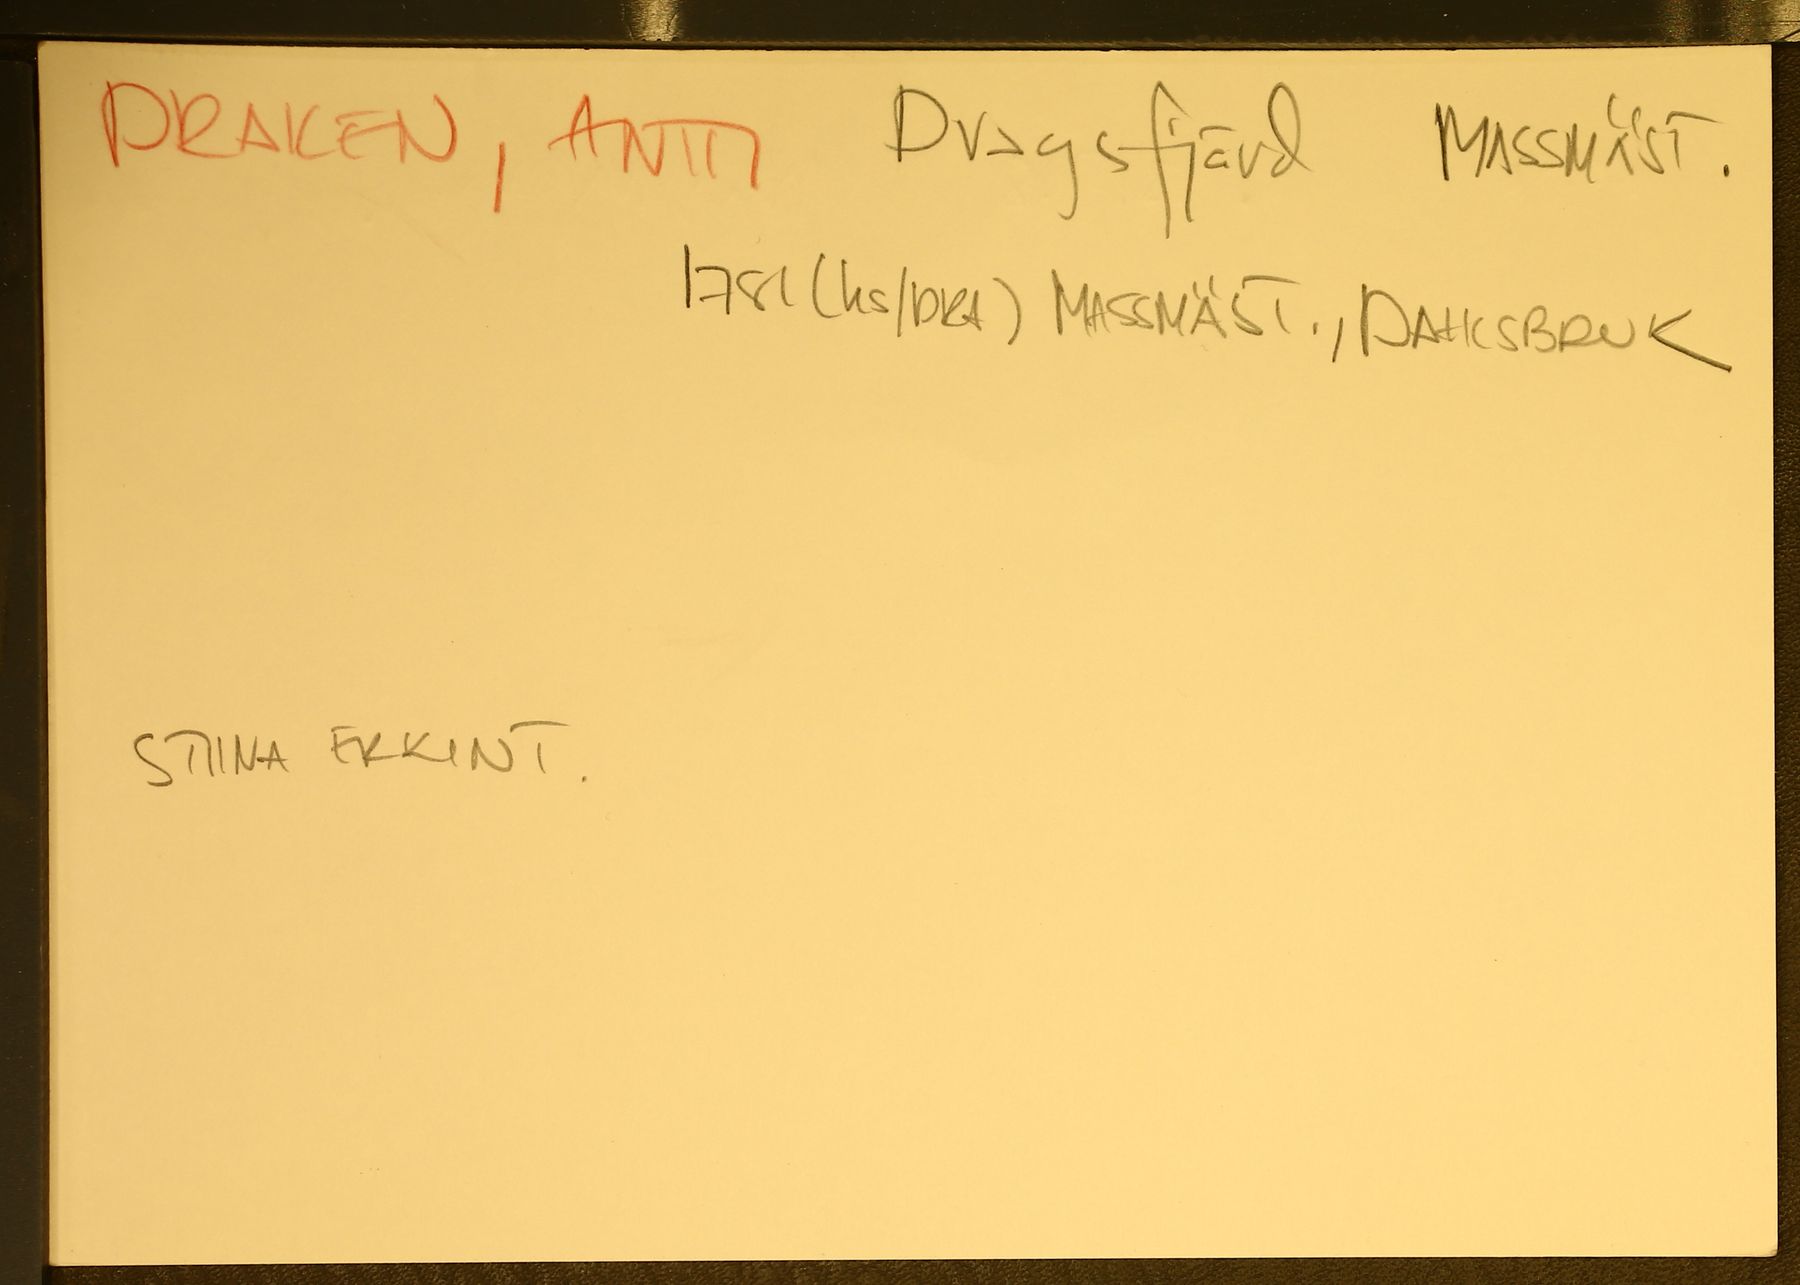 DRAKEN, ANTTI Dragsfjärd MASSMÄST.
1781 (ks/DRA) MASSMÄST., DAHLSBRUK
STIINA ERKINT.